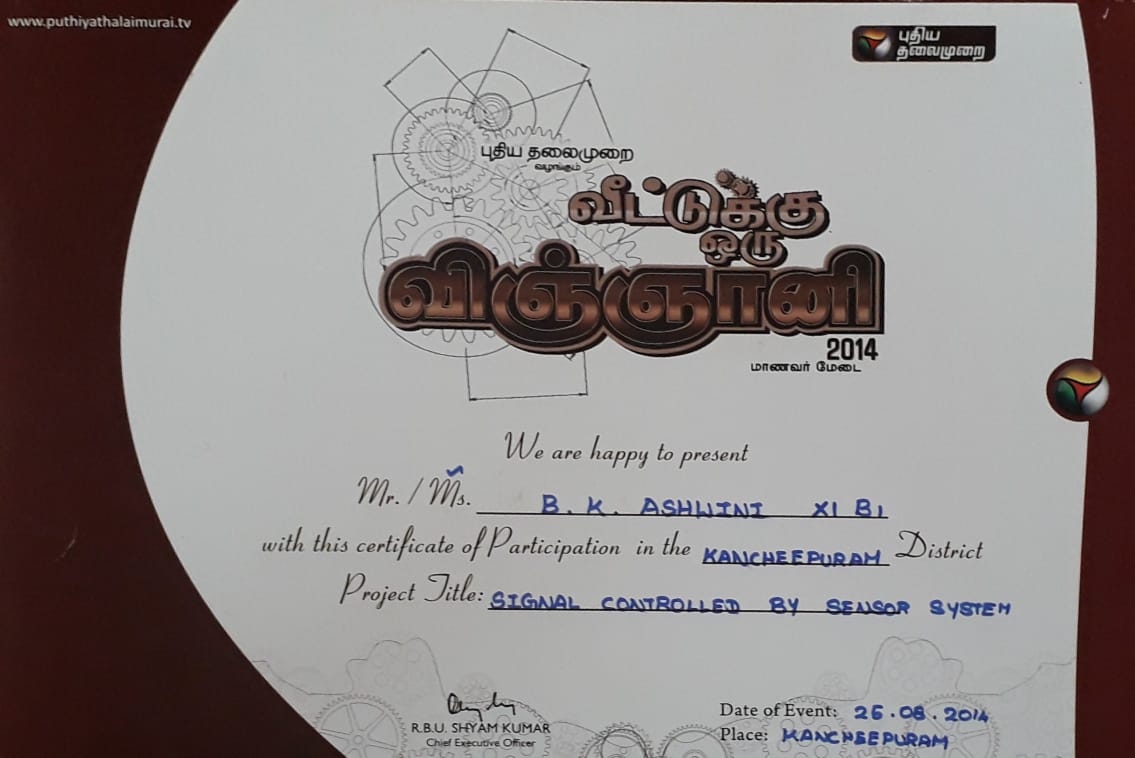 www.puthiyathalaimurai.tv
புதிய
தலைமுறை
புதிய தலைமுறை
வழங்கும்
வீட்டுக்கு
ஒரு
விஞ்ஞானி
2014
மாணவர் மேடை
We are happy to present
Mr. / Ms. B. K. ASHWINI XI B1
with this certificate of Participation in the KANCHEEPURAM District
Project Title: SIGNAL CONTROLLED BY SENSOR SYSTEM
R.B.U. SHYAM KUMAR
Chief Executive Officer
Date of Event: 26.08.2014
Place: KANCHEEPURAM